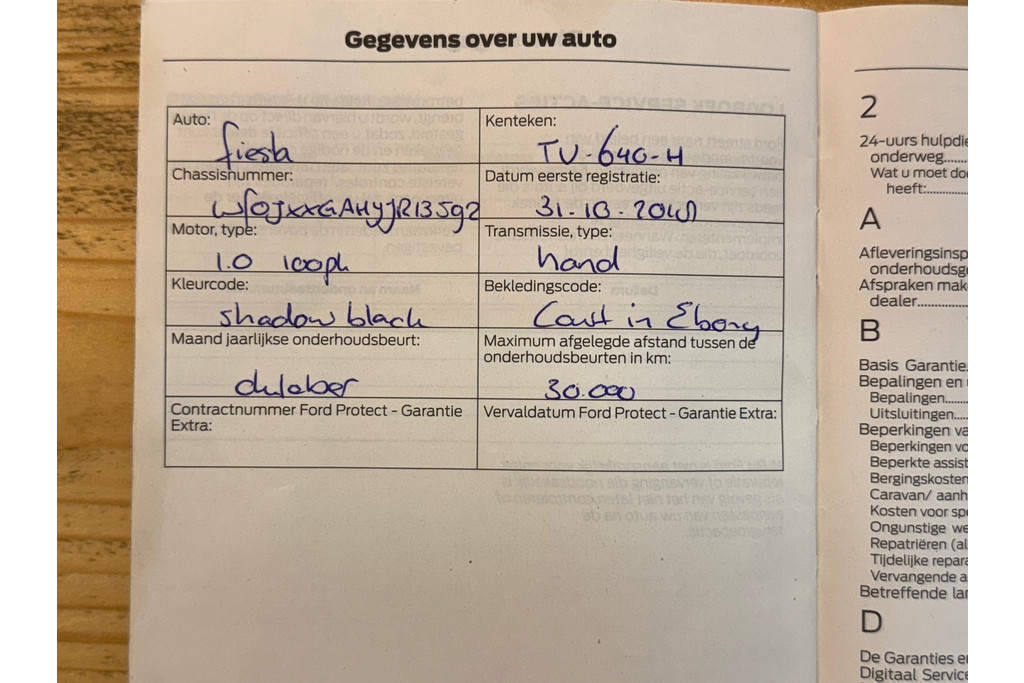 Gegevens over uw auto
Auto:
fiesta
Kenteken:
TV-640-H
Chassisnummer:
Datum eerste registratie:
Motor, type:
1.0 100ph
Transmissie, type:
hand
Kleurcode:
shadow black
Bekledingscode:
in Ebony
Maand jaarlijkse onderhoudsbeurt:
Maximum afgelegde afstand tussen de
onderhoudsbeurten in km:
30.000
Contractnummer Ford Protect - Garantie
Extra:
Vervaldatum Ford Protect - Garantie Extra:
2
24-uurs
onderweg......
Wat u moet
heeft:..........
A
onderhoudsg
Afspraken
dealer...............
B
Basis Garantie.
Bepalingen en
Bepalingen.......
Uitsluitingen....
Beperkingen
Beperkingen
Beperkte
Bergingskosten
Caravan/
Kosten voor
Ongunstige
Repatriëren
Tijdelijke
Vervangende
Betreffende
D
De Garanties
Digitaal